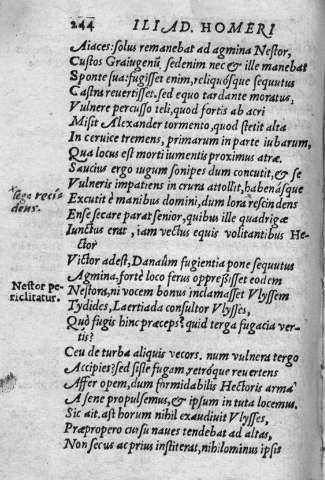 244 ILIAD. HOMERI
Aiaces: solus remanebat ad agmina Nestor,
Custos Graiugenû, sedenim nec & ille manebat
Sponte sua: fugisset enim, reliquósque sequutus
Castra reuertisset. sed equo tardante moratus,
Vulnere percusso teli, quod fortis ab acri
Misit Alexander tormento, quod stetit alta
In ceruice tremens, primarum in parte iubarum,
Qua locus est morti iumentis proximus atræ.
Saucius ergo iugum sonipes dum concutit, & se
Vulneris impatiens in crura attollit, habenásque
lege reci-
dens.
Excutit è manibus domini, dum lora rescindens
Ense secare parat senior, quibus ille quadrigæ
Iunctus erat, iam vectus equis volitantibus He-
ctor
Victor adest, Danaûm fugientia pone sequutus
Agmina, forte loco ferus oppreßisset eodem
Nestor pe-
riclitatur.
Nestora, ni vocem bonus inclamasset Vlyssem
Tydides, Laertiada consultor Vlysses,
Quò fugis hinc præceps? quid terga fugacia ver-
tis?
Ceu de turba aliquis vecors. num vulnera tergo
Accipies? sed siste fugam, retróque reuertens
Affer opem, dum formidabilis Hectoris arma
A sene propulsemus, & ipsum in tuta locemus.
Sic ait. ast horum nihil exaudiuit Vlysses,
Præpropero cursu naues tendebat ad altas,
Non secus ac prius institerat, nihilominus ipsis